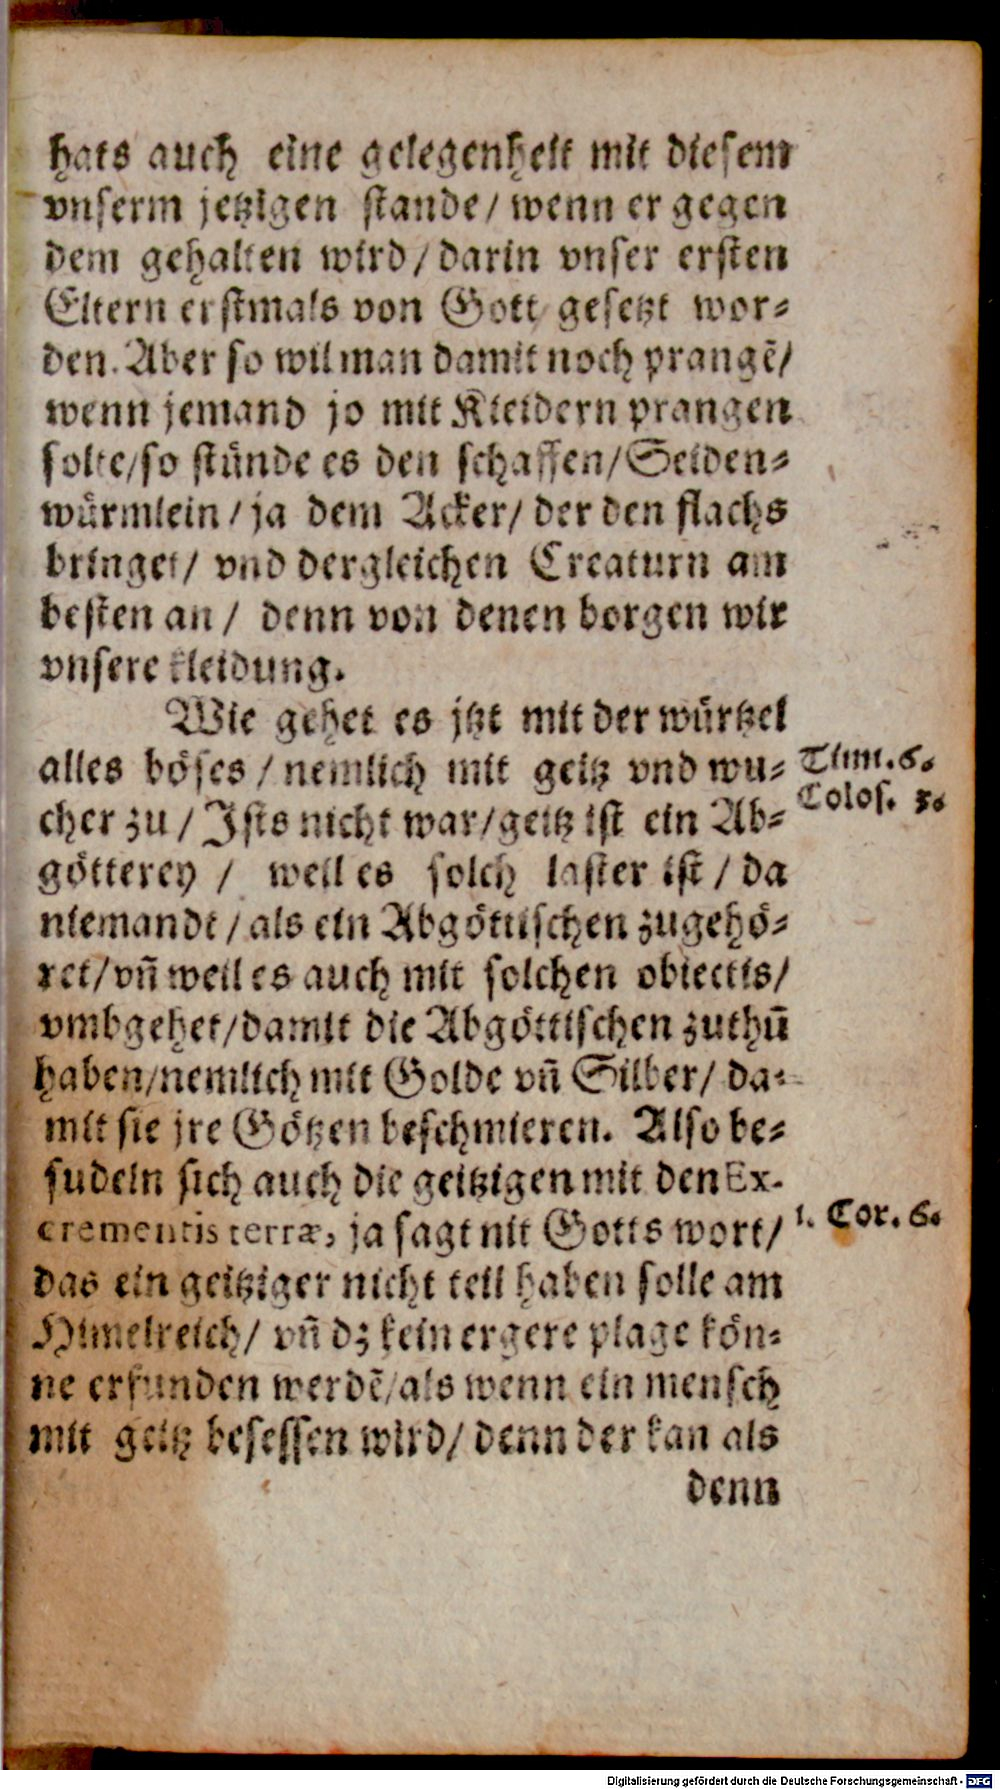 hats auch eine gelegenheit mit diesem
vnserm jetzigen stande / wenn er gegen
dem gehalten wird / darin vnser ersten
Eltern erstmals von Gott gesetzt wor⸗
den. Aber so wil man damit noch prangē /
wenn jemand jo mit Kleidern prangen
solte / so stünde es den schaffen / Seiden⸗
würmlein / ja dem Acker / der den flachs
bringet / vnd dergleichen Creaturn am
besten an / denn von denen borgen wir
vnsere kleidung.
Wie gehet es jtzt mit der würtzel
alles böses / nemlich mit geitz vnd wu⸗
Tim. 6.
Colos. 3.
cher zu / Ists nicht war / geitz ist ein Ab⸗
götterey / weil es solch laster ist / da
niemandt / als ein Abgöttischen zugehö⸗
ret / vn̄ weil es auch mit solchen obiectis /
vmbgehet / damit die Abgöttischen zuthun̄
haben / nemlich mit Golde vn̄ Silber / da⸗
mit sie jre Götzen beschmieren. Also be⸗
sudeln sich auch die geitzigen mit den Ex-
crementis terræ, ja sagt nit Gotts wort /
1. Cor. 6.
das ein geitziger nicht teil haben solle am
Himelreich / vn̄ dz kein ergere plage kön⸗
ne erfunden werdē / als wenn ein mensch
mit geitz besessen wird / denn der kan als
denn
Digitalisierung gefördert durch die Deutsche Forschungsgemeinschaft - DFG